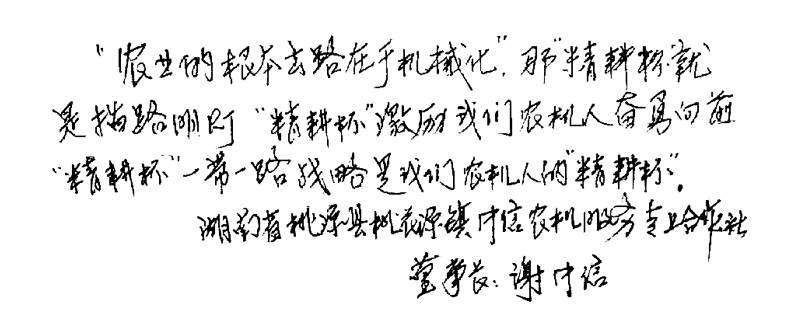 “农业的根本出路在于机械化”，那“精耕杯”就
是指路明灯“精耕杯”激励我们农机人奋勇向前
“精耕杯”一带一路战略是我们农机人的“精耕杯”。
湖南省桃源县桃花源镇中信农机服务专业合作社
董事长：谢中信